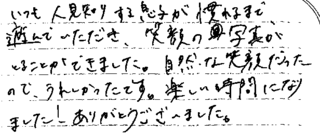 いつも人見知りする息子が慣れるまで
遊んでいただき、笑顔の写真が
とることができました。自然な笑顔だった
ので、うれしかったです。楽しい時間になり
ました！ありがとうございました。